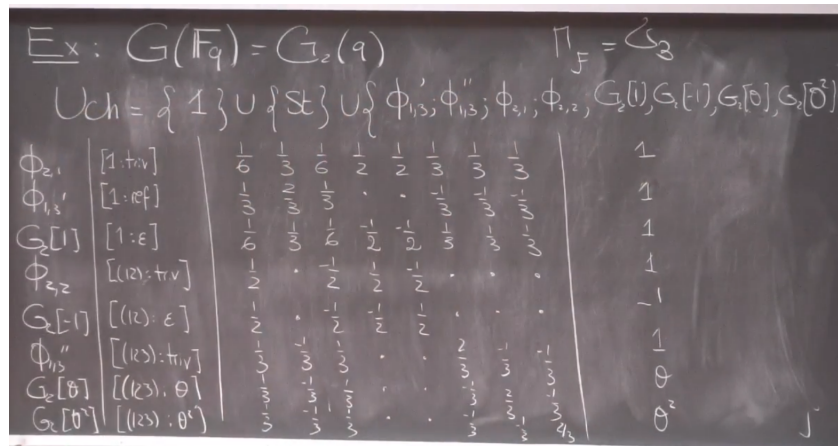 Ex: G(𝔽q) = G₂(q) Γ_F = 𝔖₃
Uch = {1} ∪ {St} ∪ {ϕ₁,₃', ϕ₁,₃''; ϕ₂,₁, ϕ₂,₂, G₂[1], G₂[-1], G₂[θ], G₂[θ²]
ϕ₂,₁ [1:triv] 1/6 1/3 1/6 1/2 1/2 1/3 1/3 1/3 1
ϕ₁,₃' [1:ref] 1/3 2/3 1/3 · · -1/3 -1/3 -1/3 1
G₂[1] [1:ε] 1/6 1/3 1/6 -1/2 -1/2 1/3 1/3 1/3 1
ϕ₂,₂ [(12):triv] 1/2 · -1/2 1/2 -1/2 · · · 1
G₂[-1] [(12):ε] 1/2 · -1/2 -1/2 1/2 · · · -1
ϕ₁,₃'' [(123):triv] 1/3 -1/3 1/3 · · 2/3 -1/3 -1/3 1
G₂[θ] [(123):θ] 1/3 -1/3 1/3 · · -1/3 2/3 -1/3 θ
G₂[θ²] [(123):θ²] 1/3 -1/3 1/3 · · -1/3 -1/3 2/3 θ²